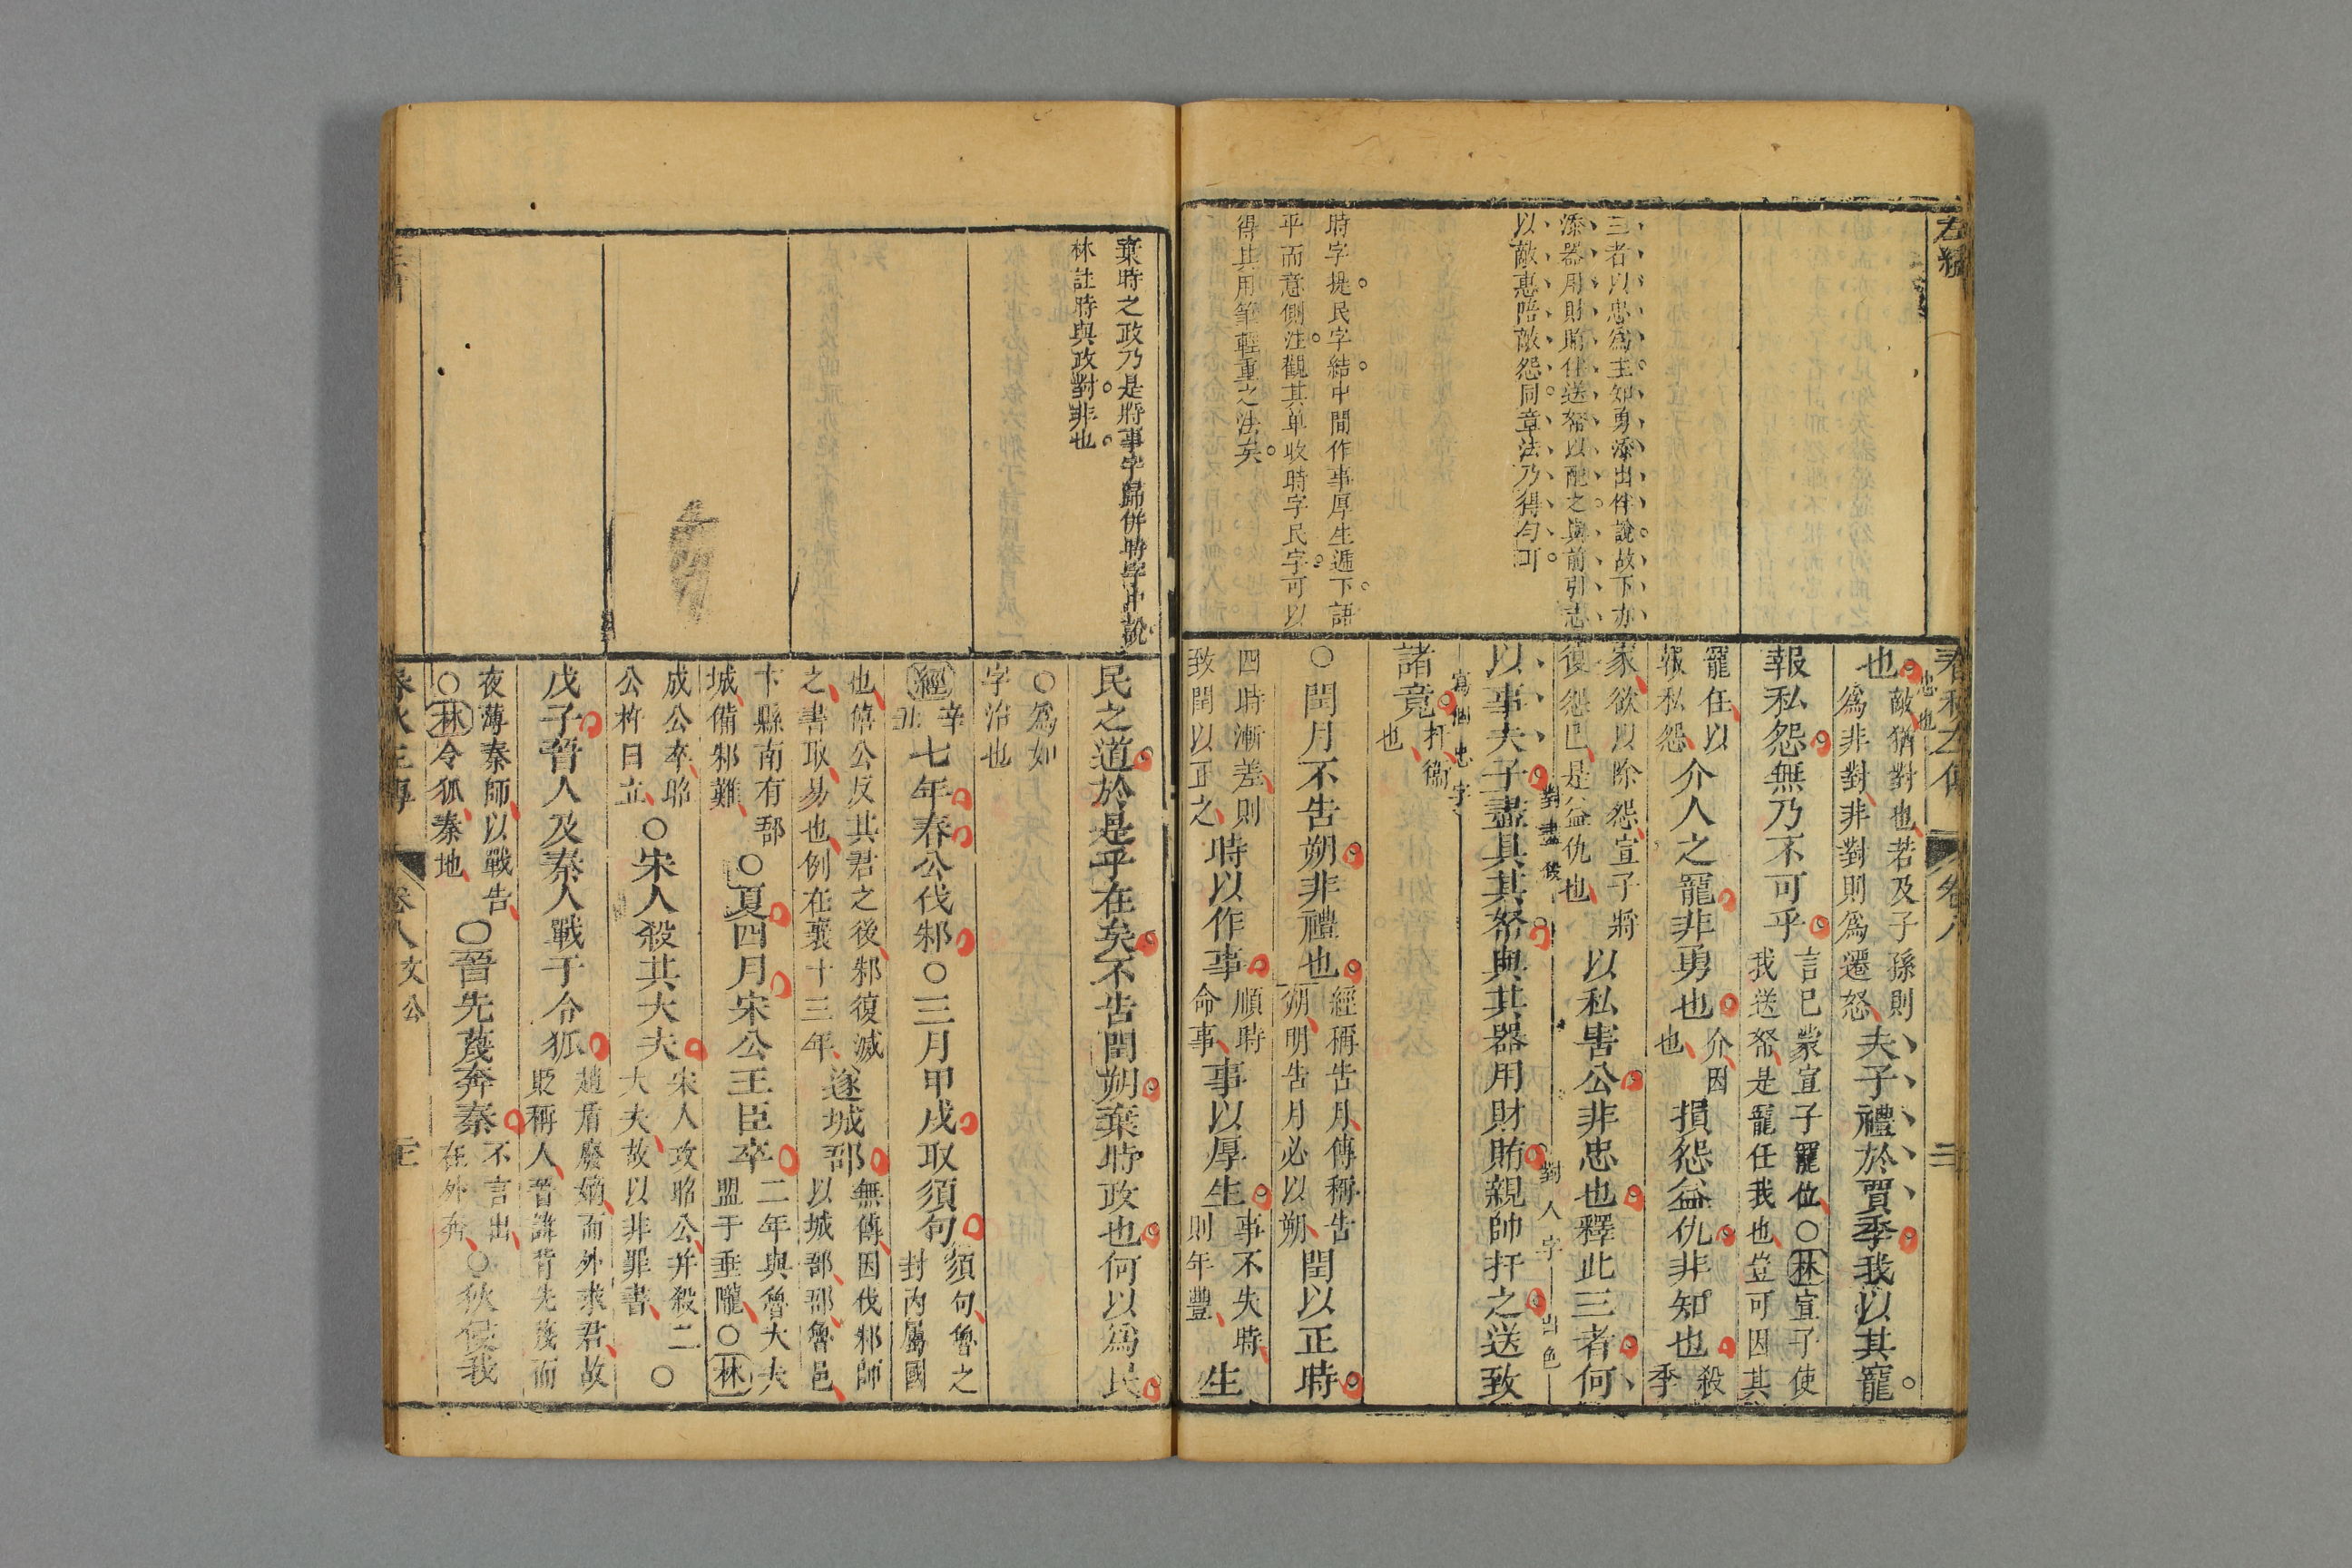 左繡
三者以忠爲主知勇添出伴說故下亦
添器用財賄仕送帑以配之與前引志
以敵惠陪敵怨同章法乃得勻可
時字提民字結中間作事厚生遞下語
平而意側注觀其單收時字民字可以
得其用筆輕重之法矣
春秋左傳
卷八
忠也
也敵猶對也若及子孫則
爲非對非對則爲遷怒夫子禮於賈季我以其寵
報私怨無乃不可乎言己蒙宣子寵位○林宣子使
我送帑是寵任我也豈可因其
寵任以
報私怨介人之寵非勇也介因
也損怨益仇非知也殺
季
家欲以除怨宣子將
復怨己是益仇也以私害公非忠也釋此三者何
對盡後
對人字
出色
以事夫子盡具其帑與其器用財賄親帥扞之送致
寫個忠字
諸竟扞衞
也
○閏月不告朔非禮也經稱告月傳稱告
朔明告月必以朔閏以正時
四時漸差則
致閏以正之時以作事順時
命事事以厚生事不失時
則年豐生
棄時之政乃是將事字歸併時字中說
林註時與政對非也
民之道於是乎在矣不告閏朔棄時政也何以爲民
○爲如
字治也
經辛
丑七年春公伐邾○三月甲戌取須句須句魯之
封內屬國
也僖公反其君之後邾復滅
之書取易也例在襄十三年遂城郚無傳因伐邾師
以城郚郚魯邑
卞縣南有郚
城備邾難○夏四月宋公王臣卒二年與魯大夫
盟于垂隴○林
成公卒昭
公杵臼立○宋人殺其大夫宋人攻昭公并殺二
大夫故以非罪書○
戊子晉人及秦人戰于令狐趙盾廢嫡而外求君故
貶稱人晉諱背先蔑而
夜薄秦師以戰告
○林令狐秦地○晉先蔑奔秦不言出
在外奔○狄侵我
春秋左傳
卷八
文公